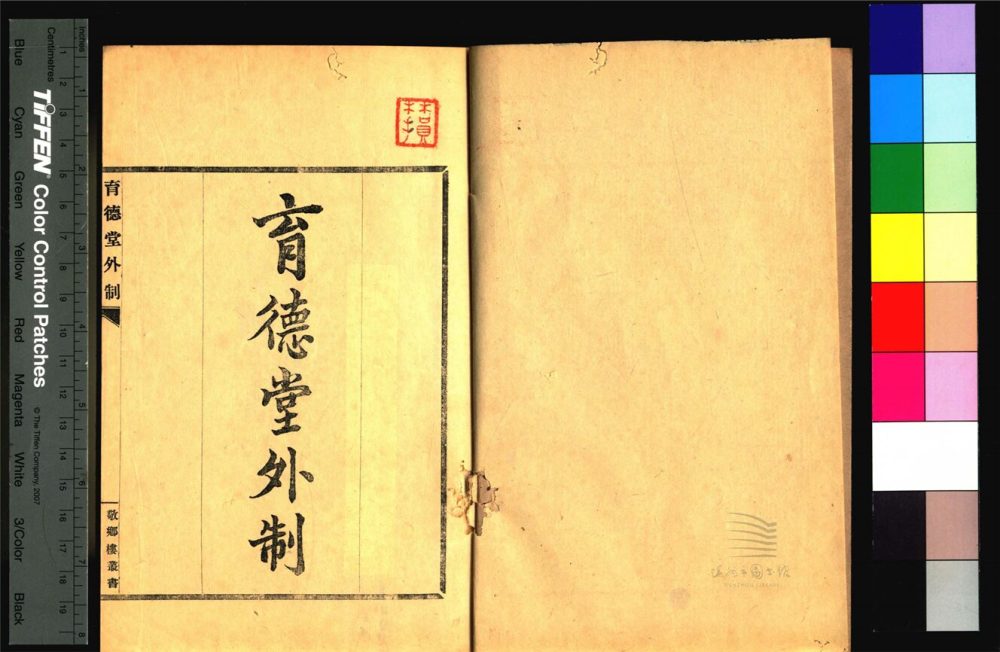 育德堂外制
育德堂外制
敬鄉樓叢書
温州市图书馆
WENZHOU LIBRARY
Inches
1
2
3
4
5
6
7
8
Centimetres
1
2
3
4
5
6
7
8
9
10
11
12
13
14
15
16
17
18
19
TIFFEN® Color Control Patches
© The Tiffen Company, 2007
Blue
Cyan
Green
Yellow
Red
Magenta
White
3/Color
Black